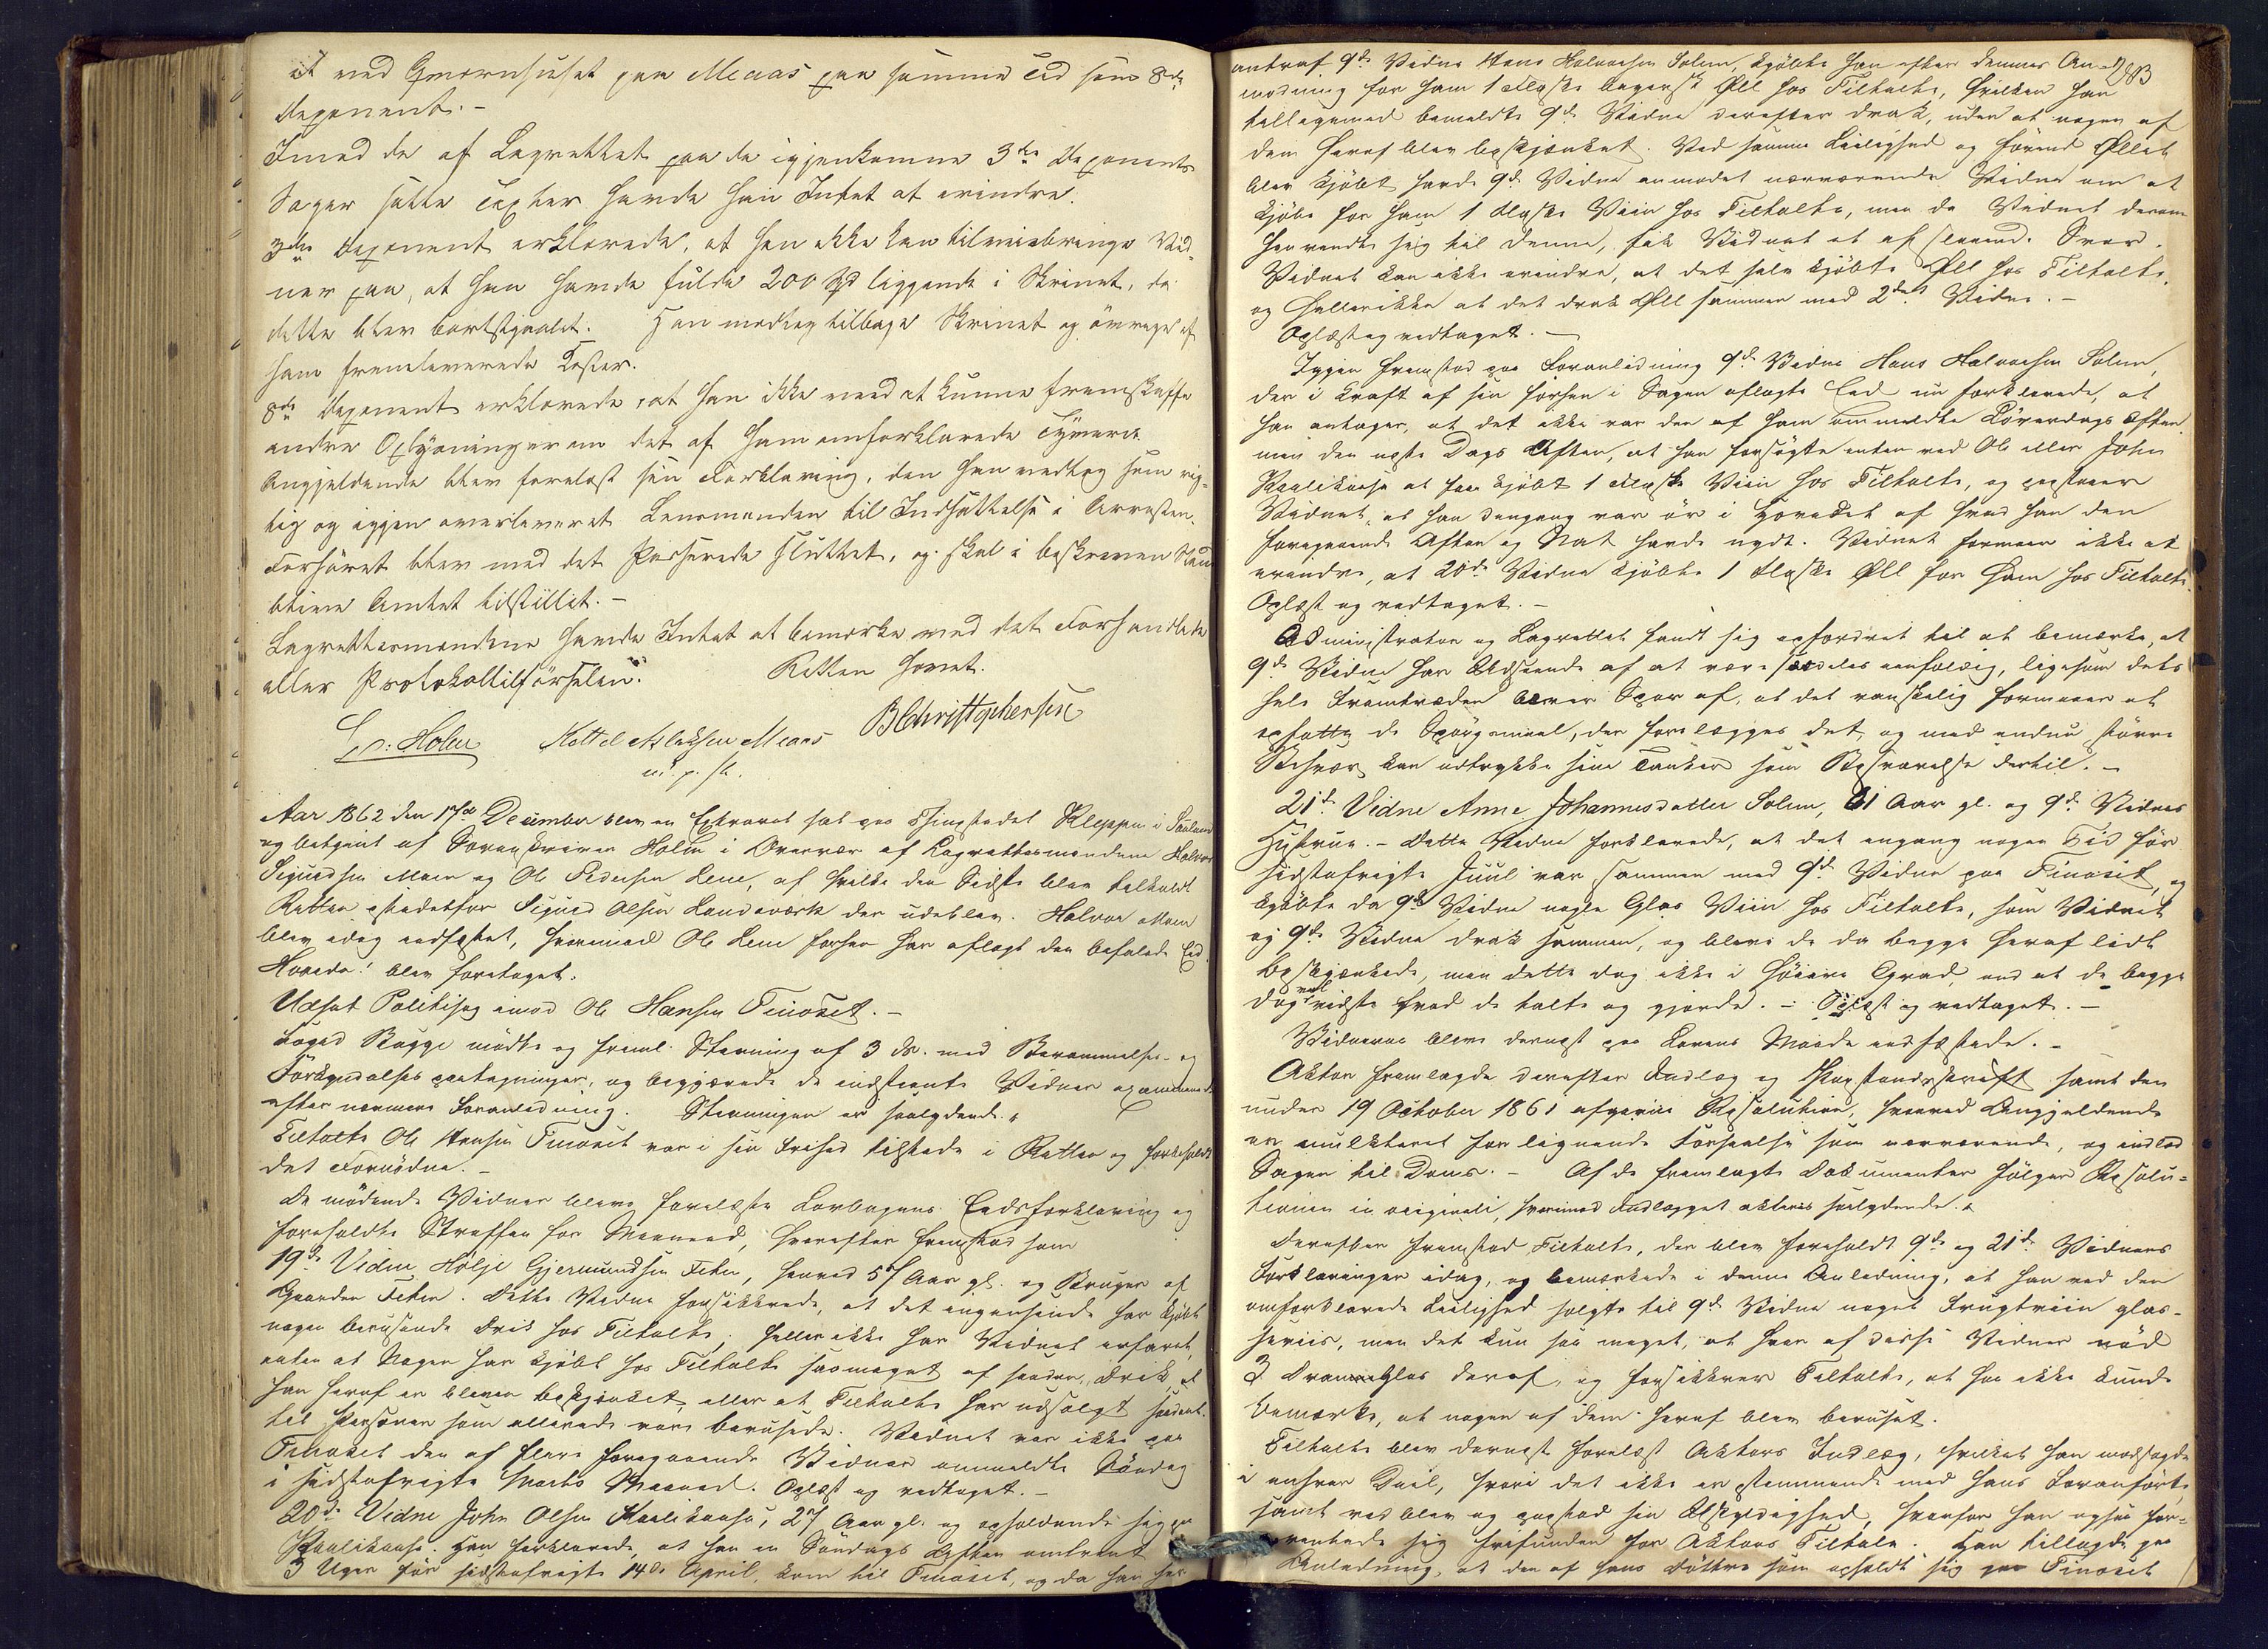 it ved Gmornhuset paa Meaas paa samme Tid som 8de
Deponent. -
Imod de af Lagrettet paa de igjenkomne 3die Deponents
Sager satte Taxter havde han Intet at erindre.
3die Deponent erklærede, at han ikke kan tilveiebringe Vid-
ner paa, at han havde fulde 200 Spd liggende i Skrinet, da
dette blev bortstjaalet. Han modtog tilbage Skrinet og övrige af
ham fremleverede Koster.
8de Deponent erklærede, at han ikke veed at kunne fremskaffe
andre Oplysninger om det af ham omforklarede Tyveri.
Angjeldende blev forelæst sin Forklaring, den han vedtog som rig-
tig og igjen overleveret Lensmanden til Indsættelse i Arresten.
Forhöret blev med det Passerede sluttet, og skal i beskreven Stand
blive Amtet tilstillet. -
Lagrettesmendene havde Intet at bemærke ved det Forhandlede
eller Protokoltilförselen. Retten hævet.
Holm Kettel Aslaksen Meaas BChristophersen
m. p. P.
Aar 1862 den 17de December blev en Extraret sat paa Thingstedet Kleppen i Sauland
og betjent af Sorenskriver Holm i Overvær af Lagrettesmændene Halvor
Sigurdsen Moen og Ole Pedersen Lene, af hvilke den Sidste blev tilkaldt
Retten istedetfor Sigurd Olsen Landsværk der udeblev. Halvor Moen
blev idag eedfæstet, hvorimod Ole Lene forhen har aflagt den befalede Eed.
Hvorda! blev foretaget.
Udsat Politisag imod Ole Hansen Tinoset. -
Foged Bugge mödte og freml. Stevning af 3 ds. med Berammelses- og
Forkyndelses paategninger, og begjærede de indstevnte Vidner examinerede
efter nærmere Foranledning. Stevningen er saalydende. "
Tiltalte Ole Hansen Tinoset var i sin Frihed tilstede i Retten og foreholdt
det Fornödne. -
De mödende Vidner bleve forelæste Lovbogens Eedsforklaring og
foreholdte Straffen for Meeneed, hvorefter fremstod som
19de Vidne Hölje Gjermundsen Feten, henved 57 Aar gl. og Bruger af
Gaarden Feten. Dette Vidne forsikkrede, at det ingensinde har kjöbt
nogen berusende Drik hos Tiltalte, heller ikke har Vidnet erfaret,
enten at Nogen har kjöbt hos Tiltalte saameget af saadan Drik at
han heraf er bleven beskjænket, eller at Tiltalte har udsolgt saadant
til Personer som allerede vare berusede. Vidnet var ikke paa
Tinoset den af flere foregaaende Vidner ommeldte Söndag
i sidstafvigte Marts Maaned. Oplæst og vedtaget. -
20de Vidne John Olsen Kaalikaasa, 27 Aar gl. og opholdende sig paa
Kaalikaasa. Han forklarede, at han en Söndags Aften omtrent
3 Uger för sidstafvigte 14de April, kom til Tinoset, og da han her
283
antraf 9de Vidne Hans Halvorsen Solem, kjöbte han efter dennes An-
modning for ham 1 Flaske bayersk Öll hos Tiltalte, hvilken han
tilligemed bemeldte 9de Vidne derefter drak, uden at nogen af
dem heraf blev beskjænket. Ved samme Leilighed og förend Öllet
blev kjöbt havde 9de Vidne anmodet nærværende Vidne om at
kjöbe for ham 1 Flaske Viin hos Tiltalte, men da Vidnet derom
henvendte sig til denne, fik Vidnet et afslaaende Svar.
Vidnet kan ikke erindre, at det selv kjöbte Öll hos Tiltalte,
og hellerikke at det drak Öll sammen med 2det Vidne. -
Oplæst og vedtaget. -
Igjen fremstod paa Foranledning 9de Vidne Hans Halvorsen Solem,
der i Kraft af sin förhen i Sagen aflagte Eed nu forklarede, at
han antager, at det ikke var den af ham ommeldte Löverdags Aften
men den næste Dags Aften, at han forsögte enten ved Ole eller John
Kaalikaasa at faa kjöbt 1 Flaske Viin hos Tiltalte, og paastaaer
Vidnet, at han dengang var ör i Hovedet af hvad han den
foregaaende Aften og Nat havde nydt. Vidnet formaaer ikke at
erindre, at 20de Vidne kjöbte 1 Flaske Öll for ham hos Tiltalte.
Oplæst og vedtaget. -
Administrator og Lagrettet fandt sig opfordret til at bemærke, at
9de Vidne har Udseende af at være særdeles eenfoldig, ligesom dets
hele Fremtræden bærer Spor af, at det vanskelig formaaer at
opfatte de Spörgsmaal, der forelægges det, og med endnu större
Besvær kan udtrykke sine Tanker som Besvarelse dertil. -
21de Vidne Anne Johannesdatter Solem, 61 Aar gl. og 9de Vidnes
Hustrue. - Dette Vidne forklarede, at det engang nogen Tid för
sidstafvigte Juul var sammen med 9de Vidne paa Tinoset, og
kjöbte da 9de Vidne nogle Glas Viin hos Tiltalte, som Vidnet
og 9de Vidne drak sammen, og bleve de da begge heraf lidt
beskjænkede, men dette dog ikke i höiere Grad, end at de begge
dog vel vidste hvad de talte og gjorde. - Oplæst og vedtaget. -
Vidnerne bleve dernæst paa Lovens Maade eedfæstede. -
Aktor fremlagde derefter Indlæg og Paastandsskrift samt den
under 19 October 1861 afgivne Resolution, hvorved Angjeldende
er mulkteret for lignende Forseelse som nærværende, og indlod
Sagen til Doms. - Af de fremlagte Dokumenter fölger Resolu-
tionen in originali, hvorimod Indlægget akteres saalydende. "
Derefter fremstod Tiltalte, der blev foreholdt 9de og 21de Vidners
Forklaringer idag, og bemærkede i denne Anledning, at han ved den
omforklarede Leilighed solgte til 9de Vidne noget Frugtviin glas-
seviis, men det kun saa meget, at hver af disse Vidner nöd
3 Dramglas deraf, og forsikkrer Tiltalte, at han ikke kunde
bemærke, at nogen af dem heraf blev beruset.
Tiltalte blev dernæst forelæst Aktors Indlæg, hvilket han modsagde
i enhver Deel, hvori det ikke er stemmende med hans Foranförte,
samt vedblev og paastod sin Uskyldighed, hvorfor han ogsaa for-
ventede sig frifunden for Aktors Tiltale. Han tillagde paa
Anledning, at den af hans Döttre som opholdt sig paa Tinoset